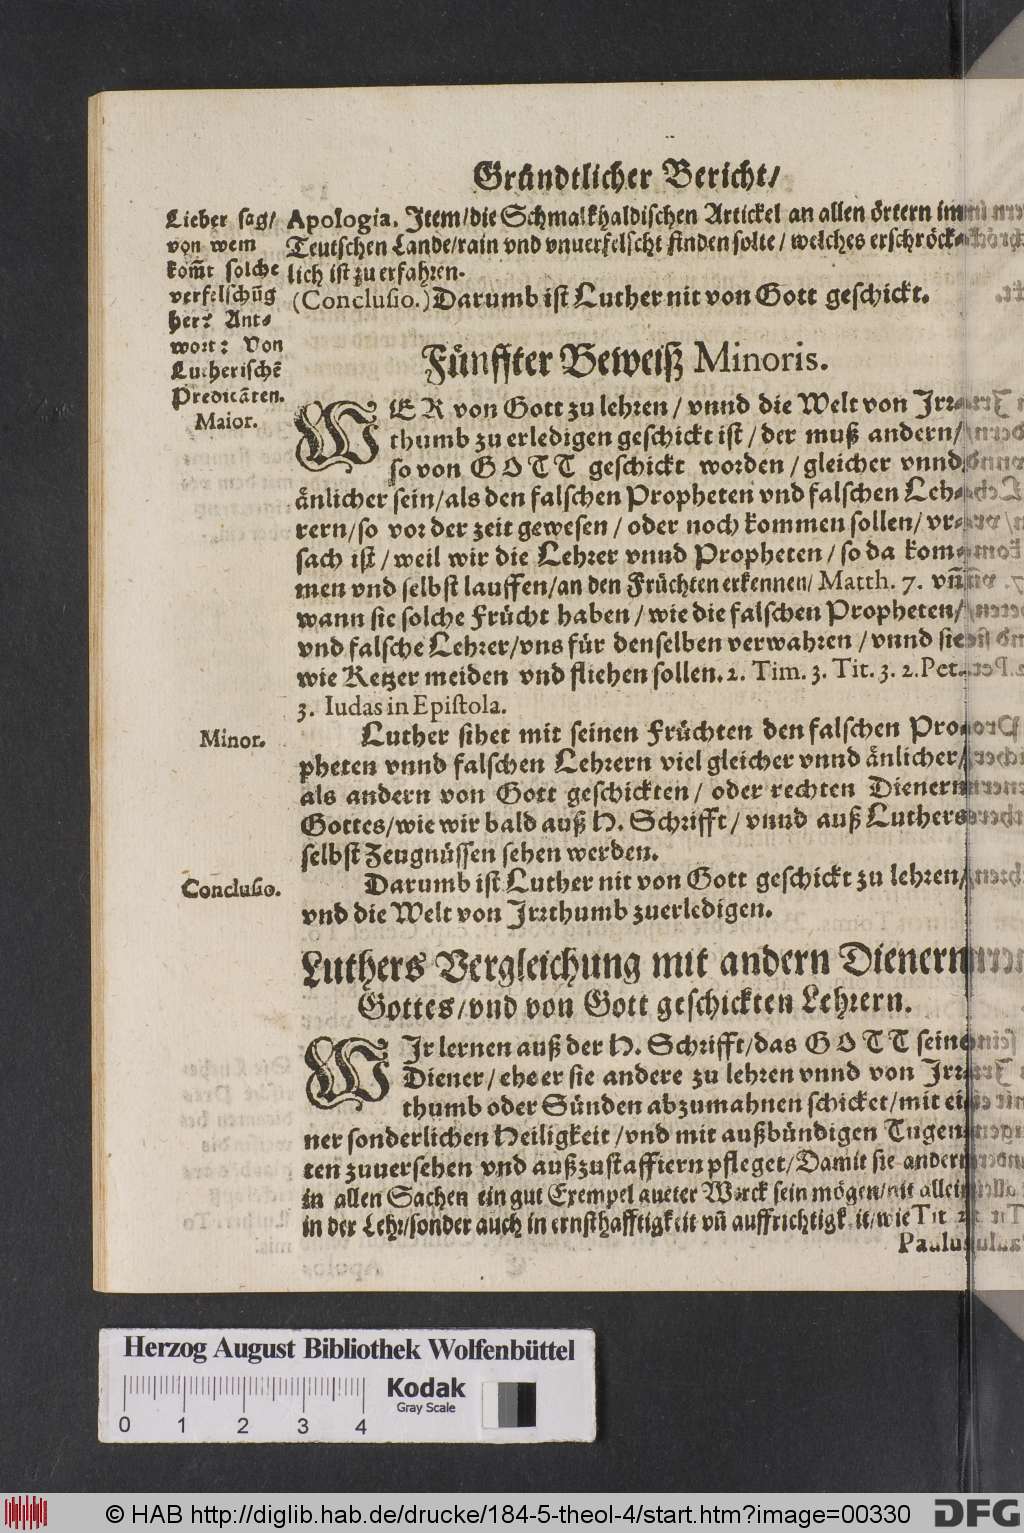 Gründtlicher Bericht/
Lieber sag/
von wem
kom̃t solche
verfelschũg
her? Ant-
wort: Von
Lutherischẽ
Predicãten.
Apologia. Item/die Schmalkhaldischen Artickel an allen örtern im
Teutschen Lande/rain vnd vnuerfelscht finden solte/welches erschröck-
lich ist zu erfahren.
(Conclusio.) Darumb ist Luther nit von Gott geschickt.
Fünffter Beweiß Minoris.
Maior.
WER von Gott zu lehren/vnnd die Welt von Irr-
thumb zu erledigen geschickt ist/der muß andern/
so von GOTT geschickt worden/gleicher vnnd
änlicher sein/als den falschen Propheten vnd falschen Leh-
rern/so vor der zeit gewesen/oder noch kommen sollen/vr-
sach ist/weil wir die Lehrer vnnd Propheten/so da kom-
men vnd selbst lauffen/an den Früchten erkennen/Matth. 7. vñ
wann sie solche Frücht haben/wie die falschen Propheten/
vnd falsche Lehrer/vns für denselben verwahren/vnnd sie
wie Ketzer meiden vnd fliehen sollen. 2. Tim. 3. Tit. 3. 2. Pet.
3. Iudas in Epistola.
Minor.
Luther sihet mit seinen Früchten den falschen Pro-
pheten vnnd falschen Lehrern viel gleicher vnnd änlicher/
als andern von Gott geschickten/oder rechten Dienern
Gottes/wie wir bald auß H. Schrifft/vnnd auß Luthers
selbst Zeugnüssen sehen werden.
Conclusio.
Darumb ist Luther nit von Gott geschickt zu lehren/
vnd die Welt von Irrthumb zuerledigen.
Luthers Vergleichung mit andern Dienern
Gottes/vnd von Gott geschickten Lehrern.
WIr lernen auß der H. Schrifft/das GOTT seine
Diener/ehe er sie andere zu lehren vnnd von Irr-
thumb oder Sünden abzumahnen schicket/mit ei-
ner sonderlichen Heiligkeit/vnd mit außbündigen Tugen-
ten zuuersehen vnd außzustaffiern pfleget/Damit sie andern
in allen Sachen ein gut Exempel gueter Werck sein mögen/nit allein
in der Lehr/sonder auch in ernsthafftigkeit vñ auffrichtigkeit/wie Tit. 2.
Paulus
Herzog August Bibliothek Wolfenbüttel
Kodak
Gray Scale
0 1 2 3 4
© HAB http://diglib.hab.de/drucke/184-5-theol-4/start.htm?image=00330
DFG